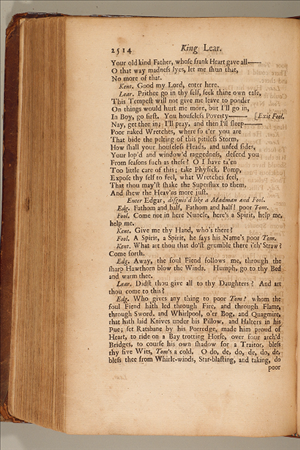 2514 King Lear.
Your old kind Father, whose frank Heart gave all——
O that way madness lyes, let me shun that,
No more of that.
Kent. Good my Lord, enter here.
Lear. Prithee go in thy self, seek thine own ease,
This Tempest will not give me leave to ponder
On things would hurt me more, but I'll go in,
In Boy, go first. You houseless Poverty—— [Exit Fool.
Nay, get thee in; I'll pray, and then I'll sleep——
Poor naked Wretches, where so e'er you are
That bide the pelting of this pitiless Storm,
How shall your houseless Heads, and unfed sides,
Your lop'd and window'd raggedness, defend you
From seasons such as these? O I have ta'en
Too little care of this; take Physick, Pomp,
Expose thy self to feel, what Wretches feel,
That thou may'st shake the Superflux to them,
And shew the Heav'ns more just.
Enter Edgar, disguis'd like a Madman and Fool.
Edg. Fathom and half, Fathom and half! poor Tom.
Fool. Come not in here Nuncle, here's a Spirit, help me,
help me.
Kent. Give me thy Hand, who's there?
Fool. A Spirit, a Spirit, he says his Name's poor Tom.
Kent. What art thou that do'st grumble there i'th' Straw?
Come forth.
Edg. Away, the foul Fiend follows me, through the
sharp Hawthorn blow the Winds. Humph, go to thy Bed
and warm thee.
Lear. Didst thou give all to thy Daughters? And art
thou come to this?
Edg. Who gives any thing to poor Tom? whom the
foul Fiend hath led through Fire, and through Flame,
through Sword, and Whirlpool, o'er Bog, and Quagmire,
that hath laid Knives under his Pillow, and Halters in his
Pue; set Ratsbane by his Porredge, made him proud of
Heart, to ride on a Bay trotting Horse, over four arch'd
Bridges, to course his own shadow for a Traitor, bless
thy five Wits, Tom's a cold. O do, de, do, de, do, de,
bless thee from Whirle-winds, Star-blasting, and taking, do
poor